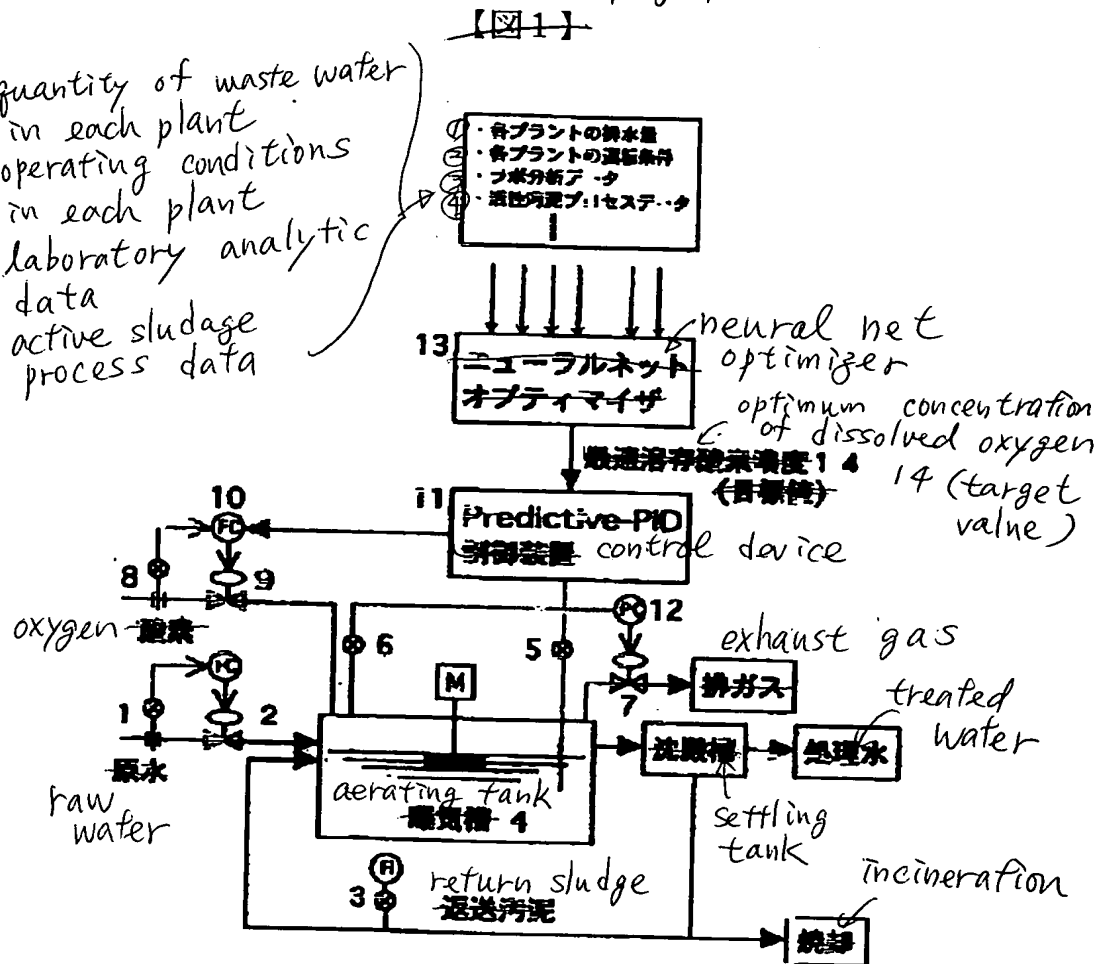 【図1】
quantity of waste water
in each plant
operating conditions
in each plant
laboratory analytic
data
active sludage
process data
① ・各プラントの排水量
② ・各プラントの運転条件
③ ・ラボ分析データ
④ ・活性汚泥プロセスデータ
13
ニューラルネット
オプティマイザ
neural net
optimizer
optimum concentration
of dissolved oxygen
14 (target
value)
最適溶存酸素濃度14
(目標値)
11
Predictive-PID
制御装置
control device
10
FC
8
9
oxygen
酸素
6
5
PC
12
exhaust gas
排ガス
7
M
1
2
原水
raw
water
aerating tank
曝気槽 4
沈殿槽
settling
tank
処理水
treated
water
3
return sludge
返送汚泥
incineration
焼却